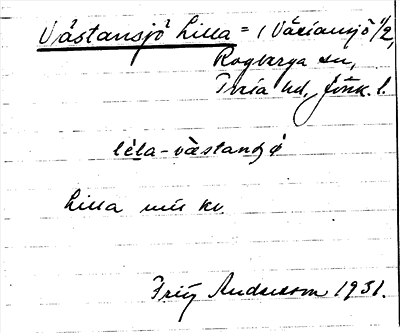 Västansjö Lilla = (Västansjö 1/2,
Rogberga sn,
Tveta hd, Jönk. l.
lìla-vä̀stansjö
Lilla
Fritz Andersson 1931.